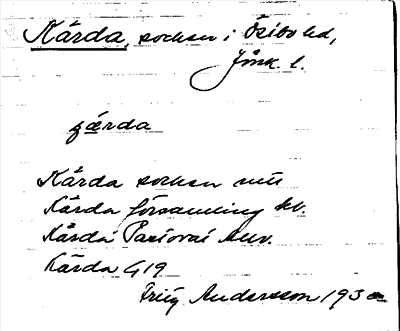 Kärda, socken i Östbo hd,
Jönk. l.
ɟæ̀rda
Kärda socken mu
Kärda församling kv.
Kärda Pastorat Mbv.
Kärda G19
Andersson 193